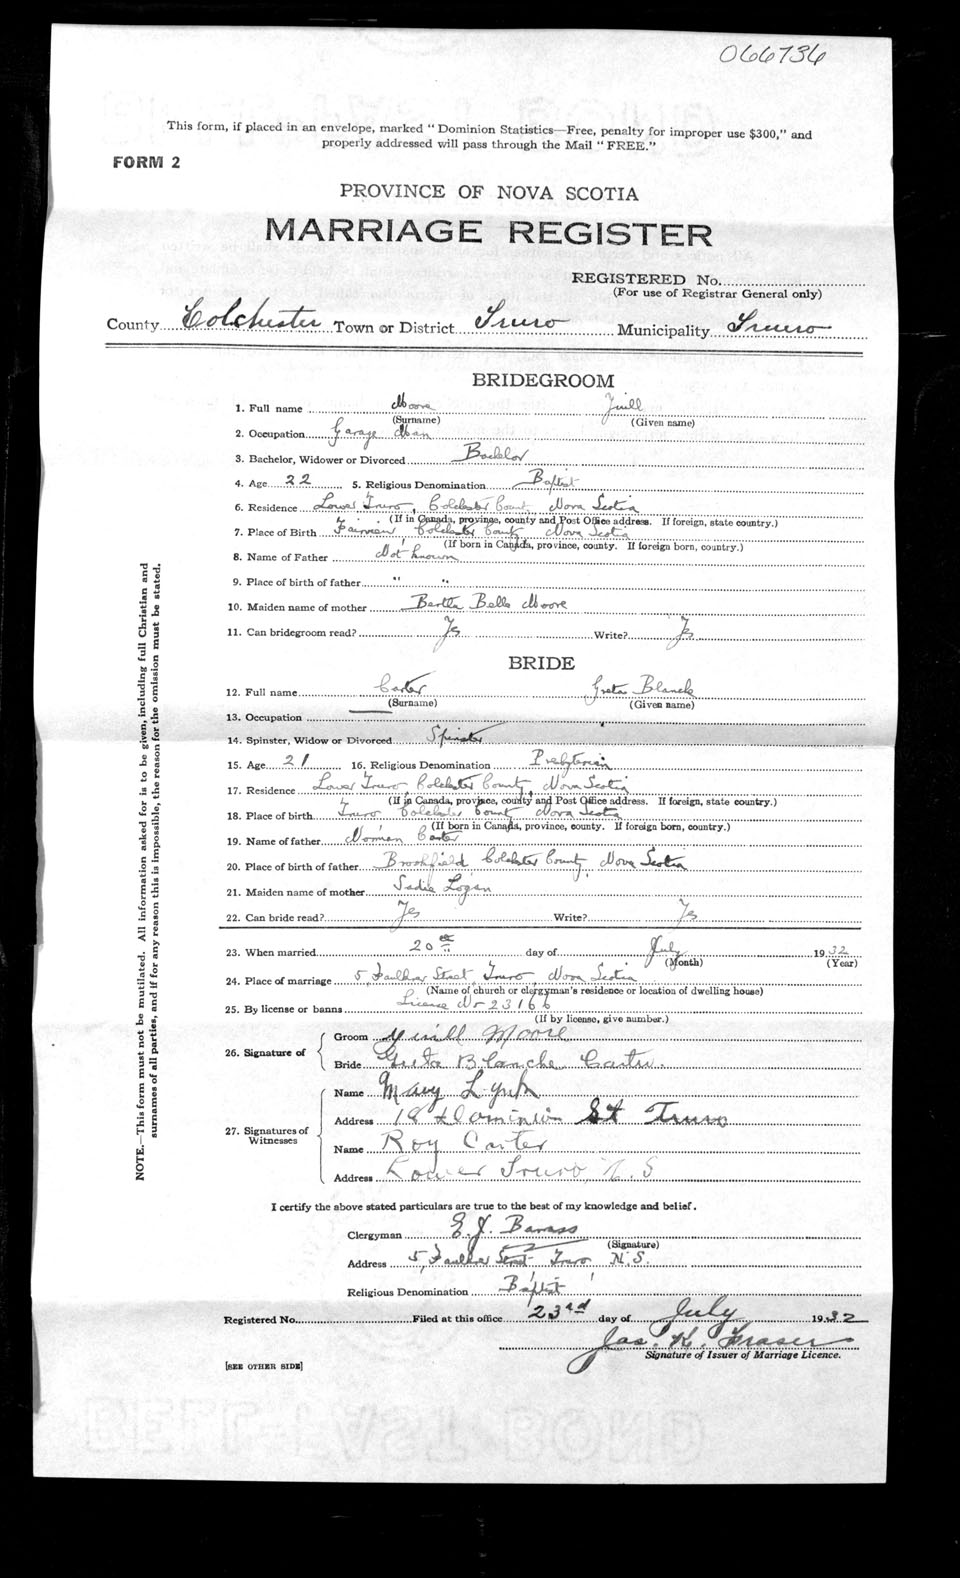 066736
This form, if placed in an envelope, marked "Dominion Statistics—Free, penalty for improper use $300," and
properly addressed will pass through the Mail "FREE."
FORM 2
PROVINCE OF NOVA SCOTIA
MARRIAGE REGISTER
REGISTERED No.
(For use of Registrar General only)
County Colchester Town or District Truro Municipality Truro
BRIDEGROOM
1. Full name Moore Yuill
(Surname) (Given name)
2. Occupation Garage Man
3. Bachelor, Widower or Divorced Bachelor
4. Age 22 5. Religious Denomination Baptist
6. Residence Lower Truro, Colchester County, Nova Scotia
(If in Canada, province, county and Post Office address. If foreign, state country.)
7. Place of Birth Fairview Colchester County Nova Scotia
(If born in Canada, province, county. If foreign born, country.)
8. Name of Father Not known
9. Place of birth of father " "
10. Maiden name of mother Bertha Belle Moore
11. Can bridegroom read? Yes Write? Yes
BRIDE
12. Full name Carter Greta Blanch
(Surname) (Given name)
13. Occupation
14. Spinster, Widow or Divorced Spinster
15. Age 21 16. Religious Denomination Presbyterian
17. Residence Lower Truro, Colchester County, Nova Scotia
(If in Canada, province, county and Post Office address. If foreign, state country.)
18. Place of birth Truro Colchester County Nova Scotia
(If born in Canada, province, county. If foreign born, country.)
19. Name of father Norman Carter
20. Place of birth of father Brookfield Colchester County, Nova Scotia
21. Maiden name of mother Sadie Logan
22. Can bride read? Yes Write? Yes
23. When married 20th day of July 1932
(Month) (Year)
24. Place of marriage 5, Faulkner Street, Truro, Nova Scotia
(Name of church or clergyman's residence or location of dwelling house)
25. By license or banns License No 23166
(If by license, give number.)
26. Signature of
Groom Yuill Moore
Bride Greta Blanche Carter.
27. Signatures of Witnesses
Name Mary Lynk
Address 18 Dominion St Truro
Name Roy Carter
Address Lower Truro, N.S
I certify the above stated particulars are true to the best of my knowledge and belief.
Clergyman E. J. Barass
(Signature)
Address 5, Faulkner Street Truro N.S.
Religious Denomination Baptist
Registered No. Filed at this office 23rd day of July 1932
Jas. K. Fraser
Signature of Issuer of Marriage Licence.
[SEE OTHER SIDE]
NOTE.—This form must not be mutilated. All information asked for is to be given, including full Christian and
surnames of all parties, and if for any reason this is impossible, the reason for the omission must be stated.